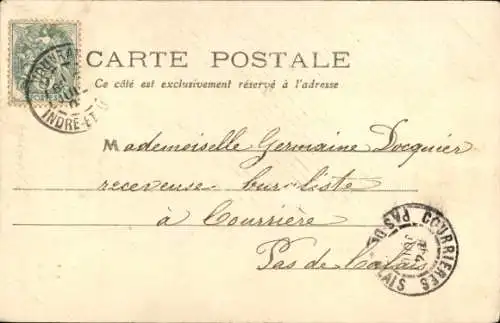 CARTE POSTALE
Ce côté est exclusivement réservé à l'adresse
Mademoiselle Germaine Docquier
receveuse buraliste
à Courrière
Pas de Calais
INDRE-ET-L
COURRIERES
PAS-DE-CALAIS